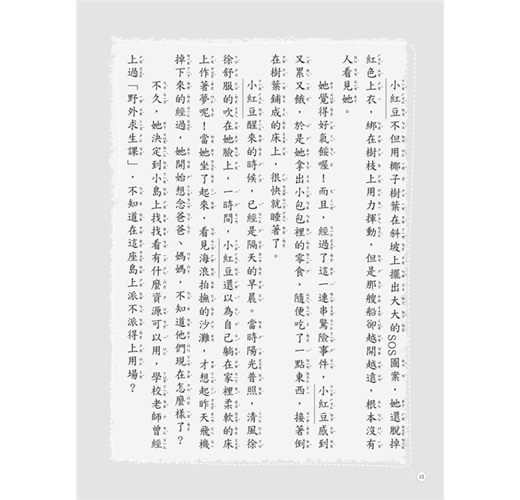 小紅豆不但用椰子樹葉在斜坡上擺出大大的SOS圖案，她還脫掉
紅色上衣，綁在樹枝上用力揮動，但是那艘船卻越開越遠，根本沒有
人看見她。
她覺得好氣餒喔！而且，經過了這一連串驚險事件，小紅豆感到
又累又餓，於是她拿出小包包裡的零食，隨便吃了一點東西，接著倒
在樹葉鋪成的床上，很快就睡著了。
小紅豆醒來的時候，已經是隔天的早晨。當時陽光普照，清風徐
徐舒服的吹在她臉上，一時間，小紅豆還以為自己躺在家裡柔軟的床
上作著夢呢！當她坐了起來，看見海浪拍撫的沙灘，才想起昨天飛機
掉下來的經過，她開始想念爸爸、媽媽，不知道他們現在怎麼樣了？
不久，她決定到小島上找找看有什麼資源可以用，學校老師曾經
上過「野外求生課」，不知道在這座島上派不派得上用場？